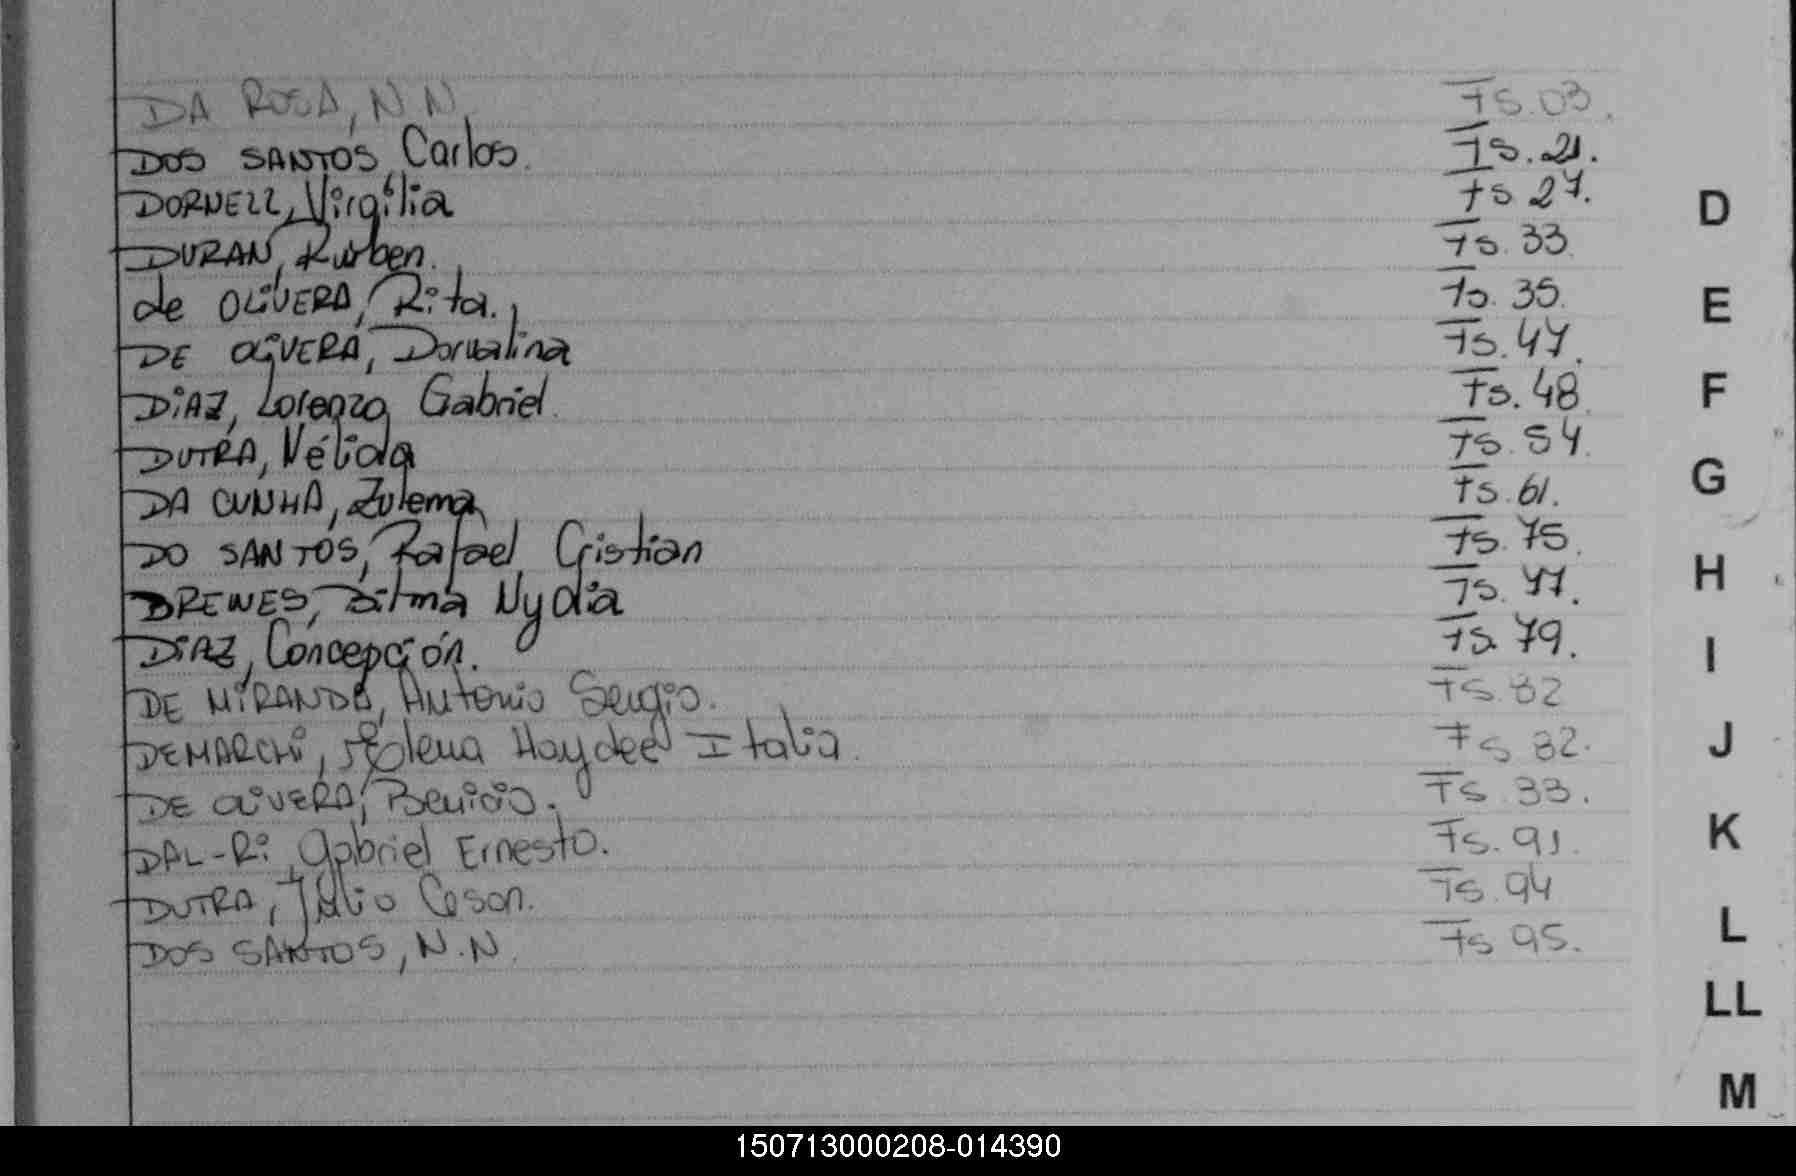 DA ROSA, N.N. Fs. 03.
DOS SANTOS, Carlos. Fs. 21.
DORNELL, Virgilia Fs 27.
DURAN, Ruben. Fs. 33.
de OLIVERA, Rita. Fs. 35.
DE OLIVERA, Dorvalina Fs. 47.
DIAZ, Lorenzo Gabriel. Fs. 48.
DUTRA, Nélida Fs. 54.
DA CUNHA, Zulema Fs. 61.
DO SANTOS, Rafael Cristian Fs. 75.
DREWES, Nydia Fs. 77.
DIAZ, Concepción. Fs. 79.
DE MIRANDA, Antonio Sergio. Fs. 82
DEMARCHI, Haydee Italia. Fs 82.
DE OLIVERA, Benicio. Fs.
DAL-Ri, Gabriel Ernesto. Fs. 91.
DUTRA, Julio Cesar. Fs. 94
DOS SANTOS, N.N. Fs 95.
D
E
F
G
H
I
J
K
L
LL
M
150713000208-014390